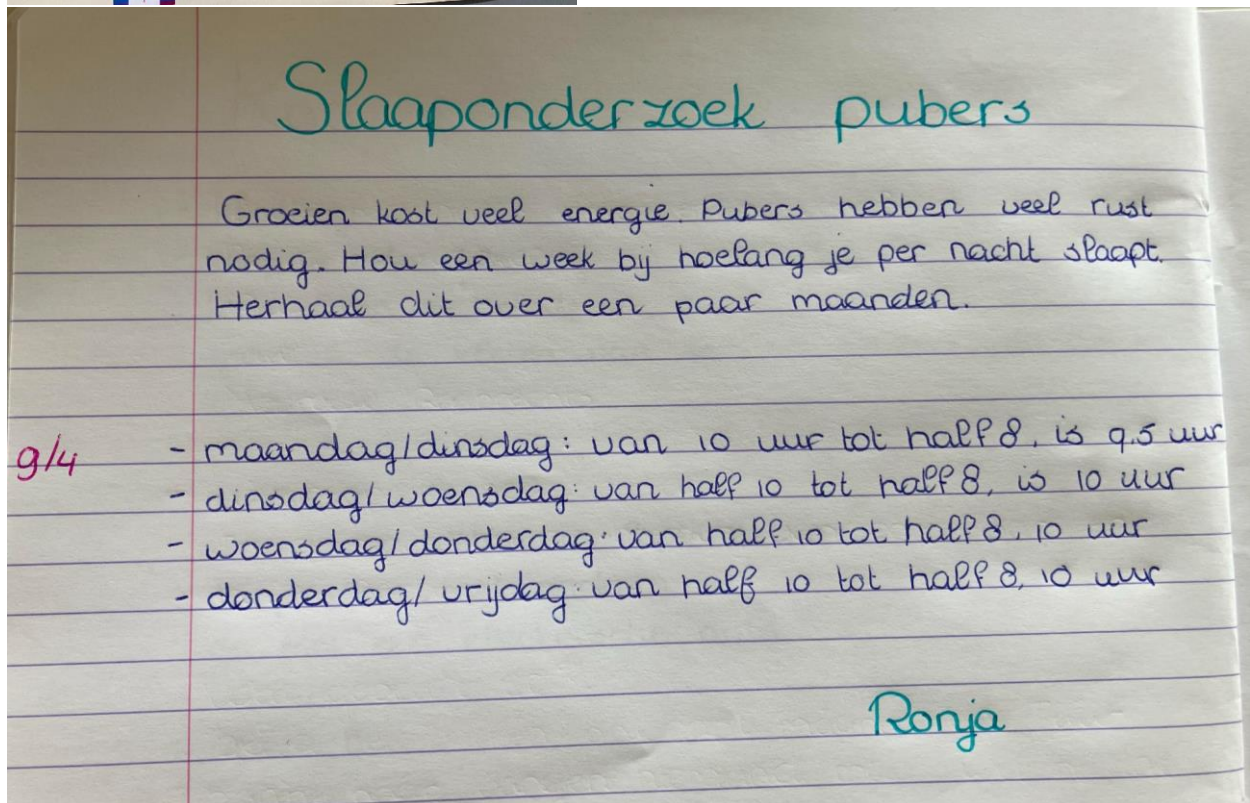 Slaaponderzoek pubers
Groeien kost veel energie. Pubers hebben veel rust
nodig. Hou een week bij hoelang je per nacht slaapt.
Herhaal dit over een paar maanden.
9/4 - maandag/dinsdag: van 10 uur tot half 8, is 9,5 uur
- dinsdag/woensdag: van half 10 tot half 8, is 10 uur
- woensdag/donderdag: van half 10 tot half 8, 10 uur
- donderdag/vrijdag: van half 10 tot half 8, 10 uur
Ronja